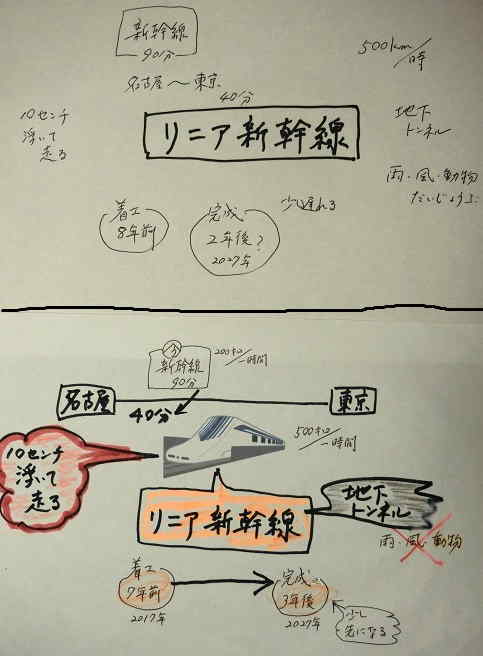 新幹線
90分
名古屋〜東京
40分
500km/時
10センチ
浮いて
走る
リニア新幹線
地下
トンネル
雨・風・動物
だいじょうぶ
着工
8年前
完成
2年後?
2027年
少し遅れる
新幹線
90分
200キロ/一時間
名古屋
40分
東京
10センチ
浮いて
走る
500キロ/一時間
リニア新幹線
地下
トンネル
雨・風・動物
着工
7年前
2017年
完成
3年後
2027年
少し
先になる